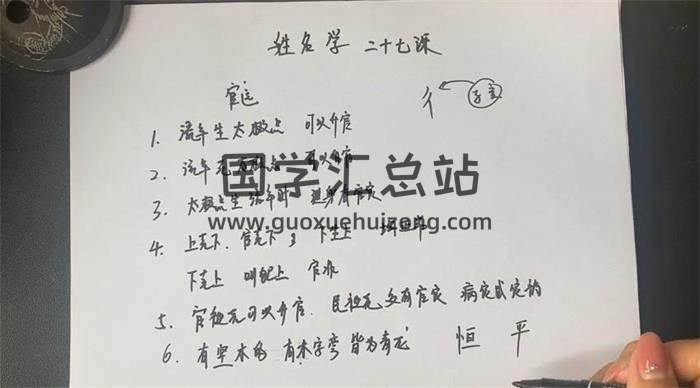 姓名学 二十七课
官运
1. 流年生太极点 可以升官
2. 流年克太极点 可以升官
国学汇总站
3. 太极点生流年时 进步有官灾
www.guoxuehuizong.com
4. 上克下、官克下 下生上
下克上 叫犯上 官非
5. 官被克可以升官. 民被克多有官灾 病灾或灾
6. 有 木的 有木字 皆为有 恒 平